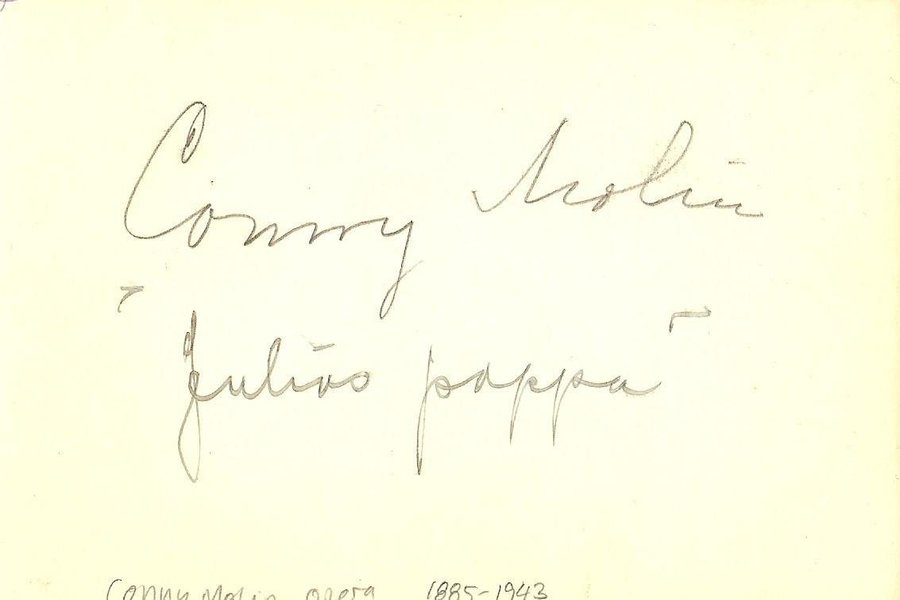 Conny Molin
"Julias pappa"
Conny Molin opera 1885-1943